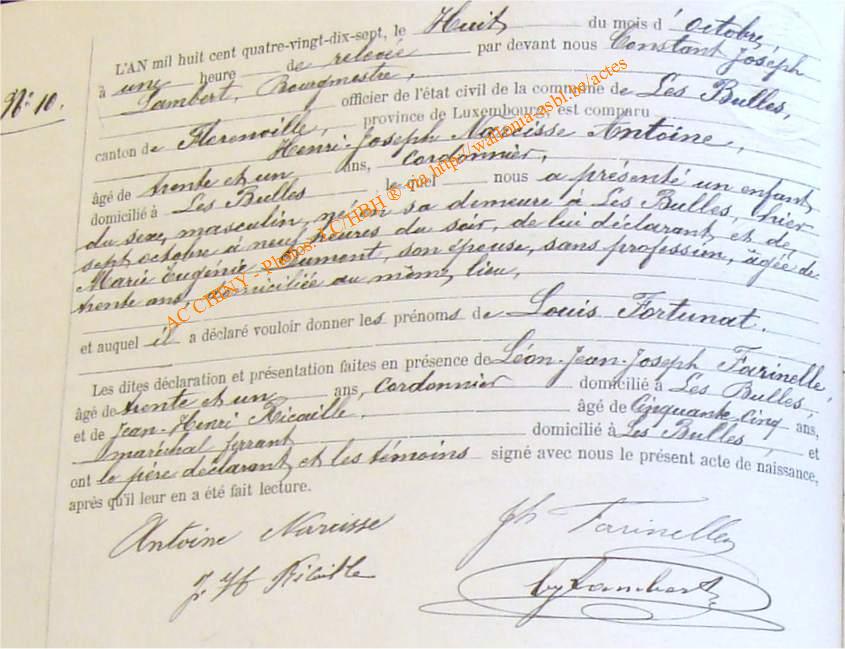 N° 10.
L'AN mil huit cent quatre-vingt-dix-sept, le Huit du mois d'octobre,
à une heure de relevée par devant nous Constant Joseph
Lambert, Bourgmestre, officier de l'état civil de la commune de Les Bulles,
canton de Florenville, province de Luxembourg, est comparu
Henri-Joseph Narcisse Antoine,
âgé de trente et un ans, cordonnier,
domicilié à Les Bulles lequel nous a présenté un enfant
du sexe masculin, né en sa demeure à Les Bulles, hier
sept octobre à neuf heures du soir, de lui déclarant et de
Marie Eugénie son épouse, sans profession, âgée de
trente ans, domiciliée au même lieu,
et auquel il a déclaré vouloir donner les prénoms de Louis Fortunat.
Les dites déclaration et présentation faites en présence de Léon-Jean-Joseph Farinelle,
âgé de trente et un ans, cordonnier domicilié à Les Bulles,
et de Jean-Henri Ricaille, âgé de Cinquante cinq ans,
maréchal ferrant domicilié à Les Bulles, et
ont le père déclarant et les témoins signé avec nous le présent acte de naissance,
après qu'il leur en a été fait lecture.
Antoine Narcisse Jh Farinelle
J. H Ricaille Lambert
AC CHINY - Photos: LC/HBH ® via http://wallonia-asbl.be/actes